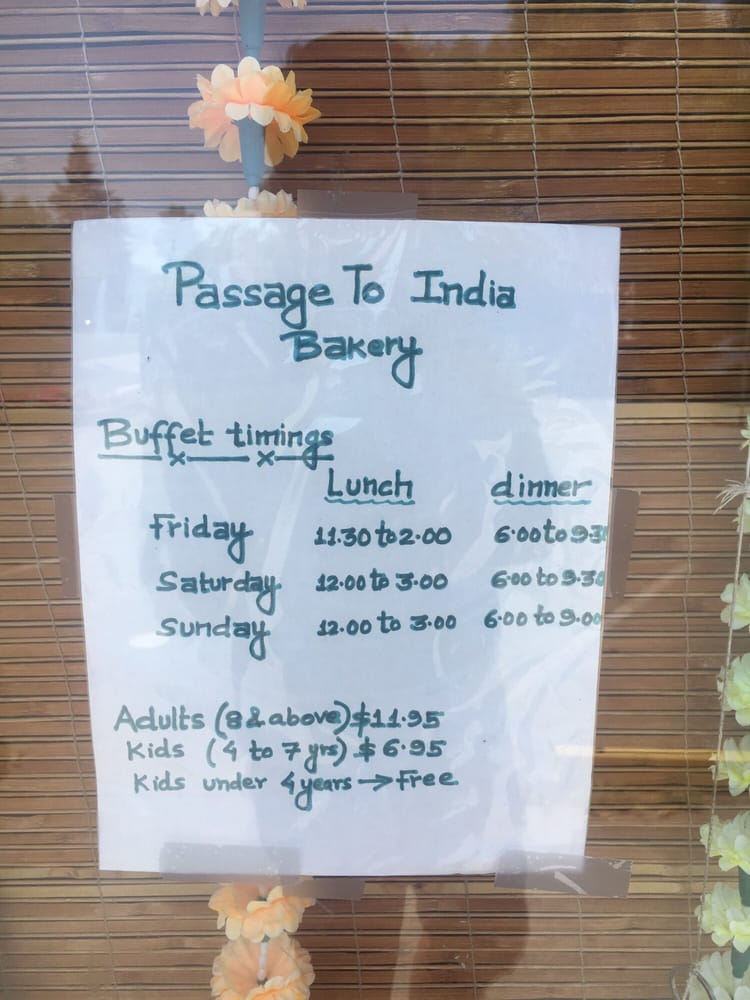 Passage To India
Bakery
Buffet timings
Lunch dinner
Friday 11.30 to 2.00 6.00 to 9.30
Saturday 12.00 to 3.00 6.00 to 9.30
Sunday 12.00 to 3.00 6.00 to 9.00
Adults (8 & above) $11.95
Kids (4 to 7 yrs) $6.95
Kids under 4 years → Free